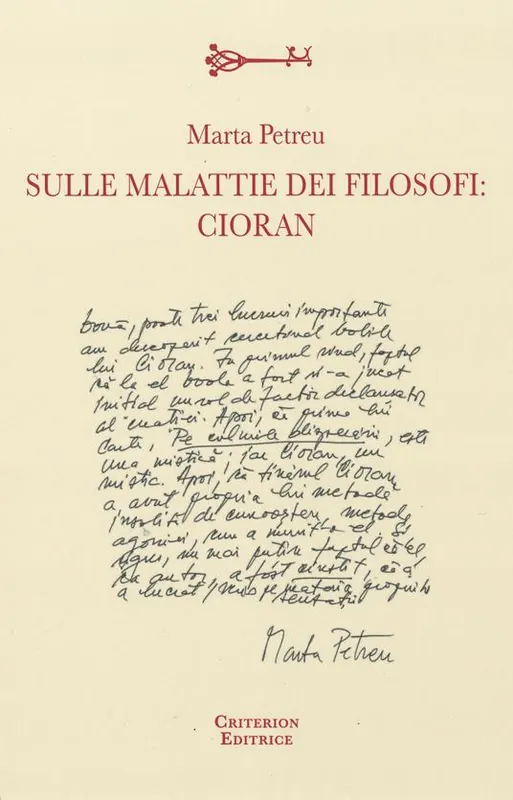 Marta Petreu
SULLE MALATTIE DEI FILOSOFI:
CIORAN
Două, poate trei lucruri importante
am descoperit cercetând bolile
lui Cioran. În primul rând, faptul
că la el boala a fost și-a jucat
inițial un rol de factor declanșator
al creației. Apoi, că prima lui
carte, Pe culmile disperării, este
una mistică; iar Cioran, un
mistic. Apoi, că tânărul Cioran
a avut propria lui metodă
insolită de cunoaștere, metoda
agoniei, cum a numit-o el. Și
sigur, nu mai puțin faptul că el,
ca autor, a fost cinstit, că a
a lucrat pe propriile
senzații
Marta Petreu
CRITERION
EDITRICE